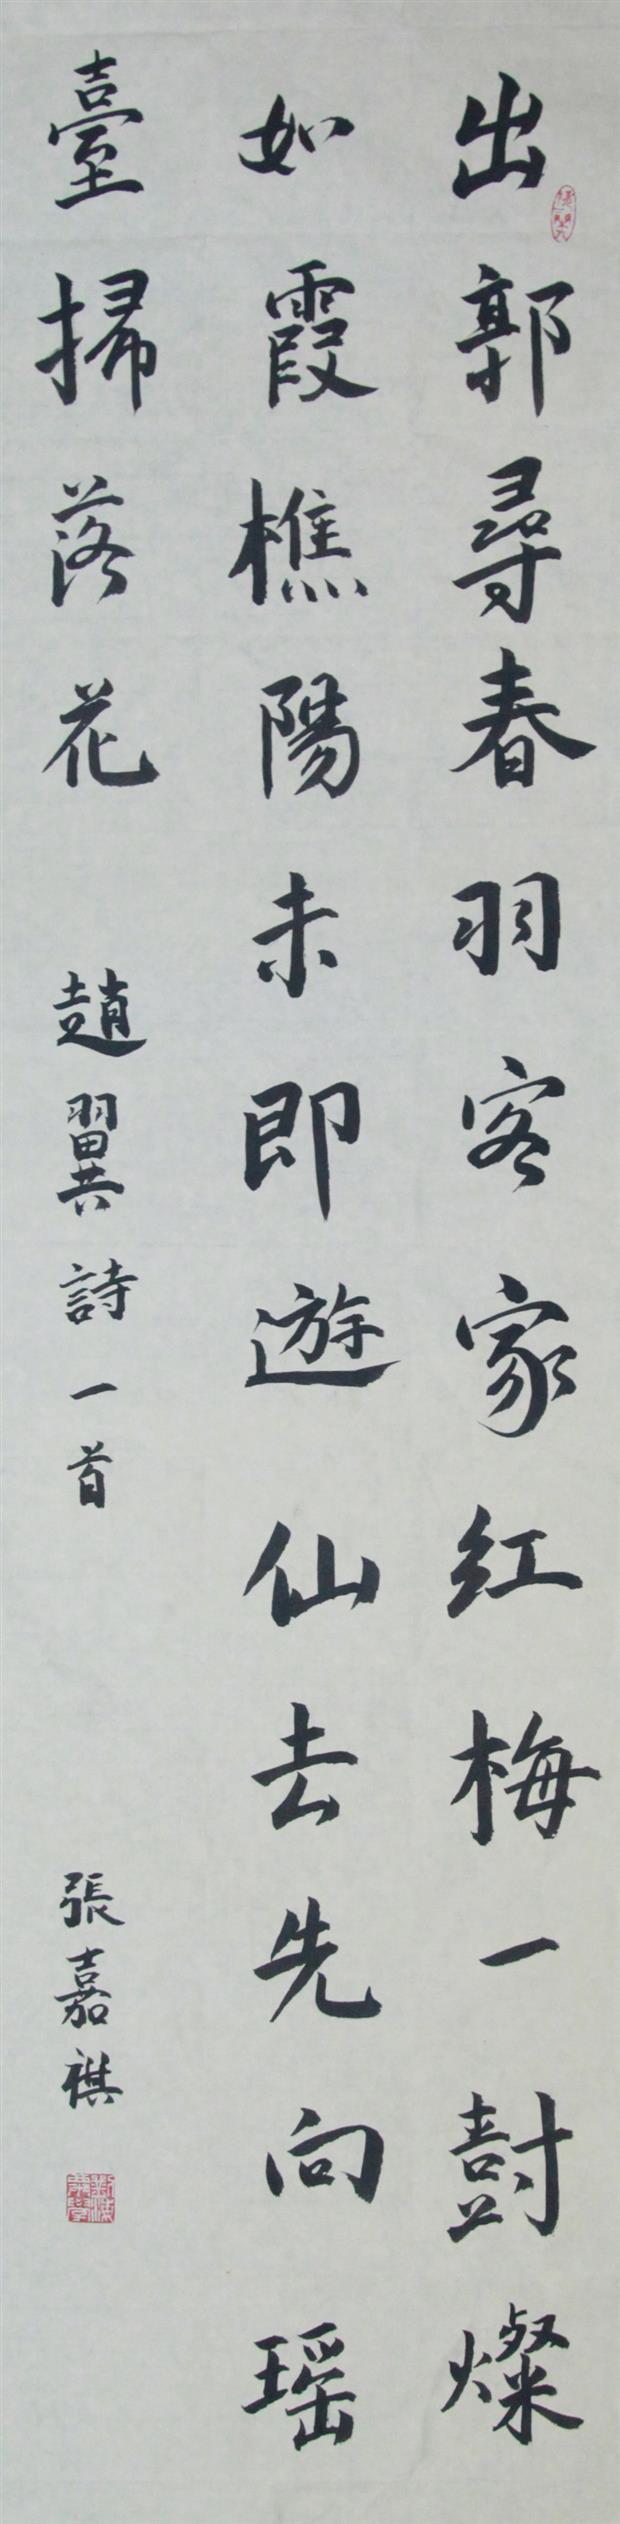 出郭尋春羽客家红梅一尌燦
如霞樵陽未即遊仙去先向瑶
臺掃落花
趙翼詩一首
張嘉祺